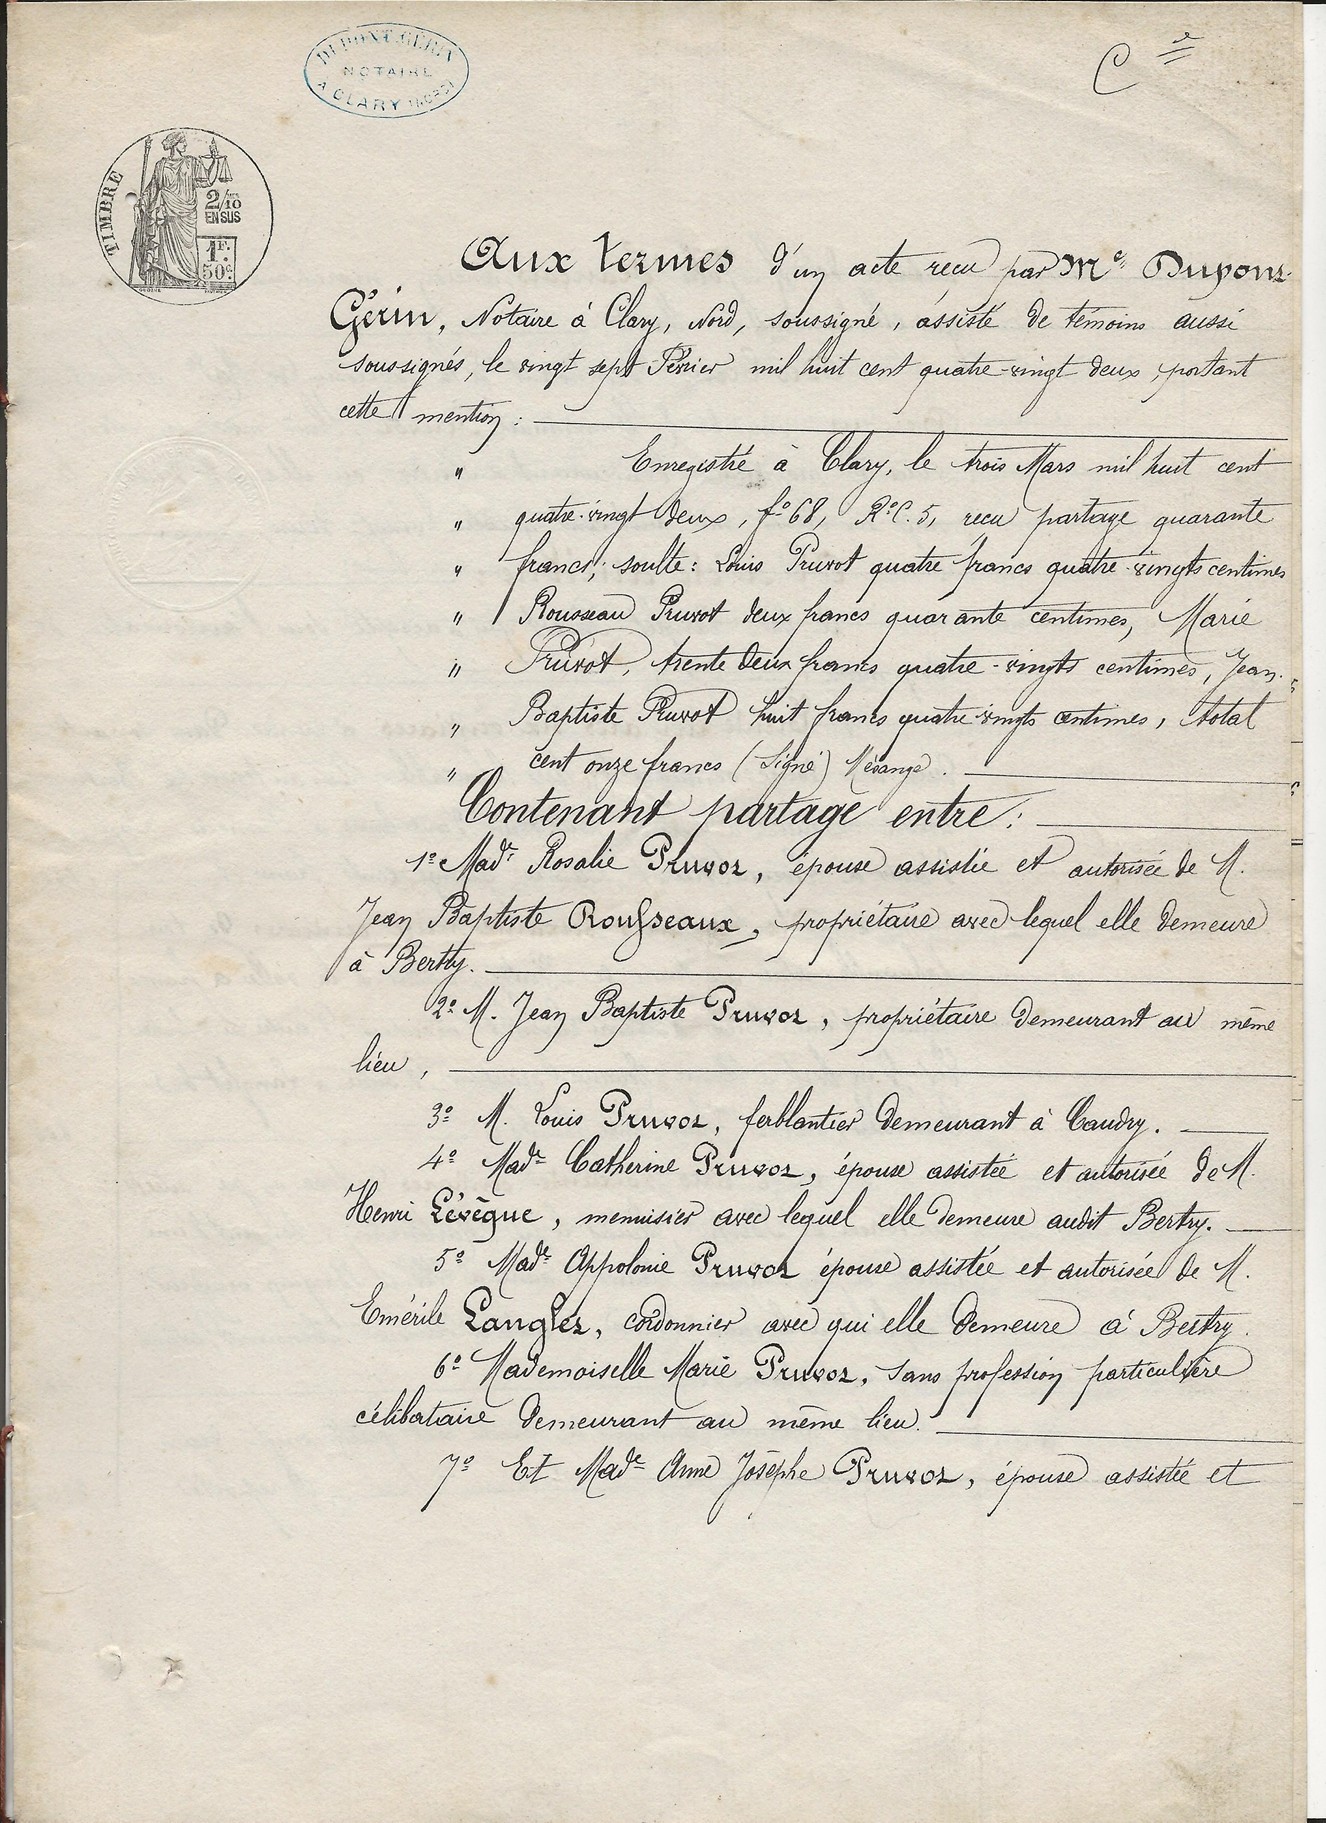 DUPONT-GÉRIN
NOTAIRE
A CLARY (NORD)
TIMBRE
2/10
EN SUS
1F.
50c.
Aux termes d'un acte reçu par Me Dupont-
Gérin, Notaire à Clary, Nord, soussigné, assisté de témoins aussi
soussignés, le vingt sept Février mil huit cent quatre-vingt deux, portant
cette mention :
" Enregistré à Clary, le trois Mars mil huit cent
" quatre-vingt deux, fo 68, Ro C. 5, reçu partage quarante
" francs; soulte : Louis Pruvot quatre francs quatre-vingts centimes
" Rousseau Pruvot deux francs quarante centimes, Marie
" Pruvot, trente deux francs quatre-vingts centimes, Jean-
" Baptiste Pruvot huit francs quatre vingts centimes, total
" cent onze francs (Signé)
Contenant partage entre :
1o Made Rosalie Pruvot, épouse assistée et autorisée de M.
Jean Baptiste Rousseaux, propriétaire avec lequel elle demeure
à Bertry.
2o M. Jean Baptiste Pruvot, propriétaire demeurant au même
lieu,
3o M. Louis Pruvot, ferblantier demeurant à Caudry.
4o Made Catherine Pruvot, épouse assistée et autorisée de M.
Henri Lévêque, menuisier avec lequel elle demeure audit Bertry.
5o Made Appolonie Pruvot épouse assistée et autorisée de M.
Emérile Langlet, cordonnier avec qui elle demeure à Bertry.
6o Mademoiselle Marie Pruvot, sans profession particulière
célibataire demeurant au même lieu.
7o Et Made Anne Josèphe Pruvot, épouse assistée et